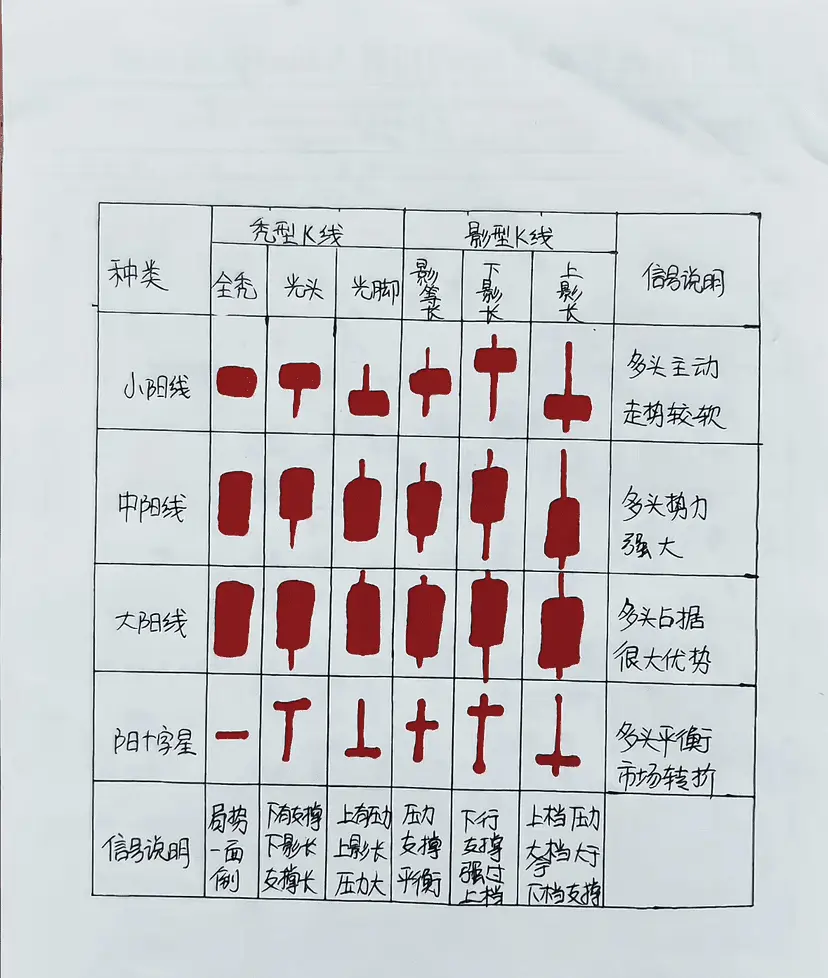 种类
秃型K线
影型K线
信号说明
全秃
光头
光脚
影等长
下影长
上影长
小阳线
多头主动
走势较软
中阳线
多头势力
强大
大阳线
多头占据
很大优势
阳十字星
多头平衡
市场转折
信号说明
局势
一面
倒
下有支撑
下影长
支撑长
上有压力
上影长
压力大
压力
支撑
平衡
下行
支撑
强过
上档
上档压力
大档大于
下档支撑